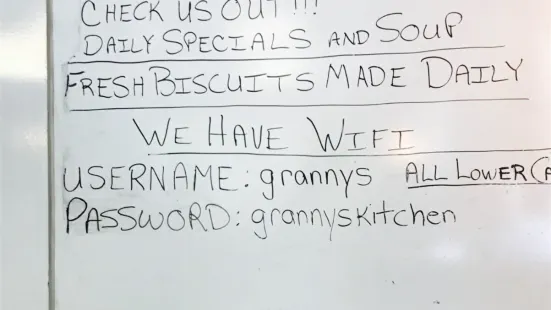 CHECK US OUT!!!
DAILY SPECIALS AND SOUP
FRESH BISCUITS MADE DAILY
WE HAVE WIFI
USERNAME: grannys ALL LOWER
PASSWORD: grannyskitchen